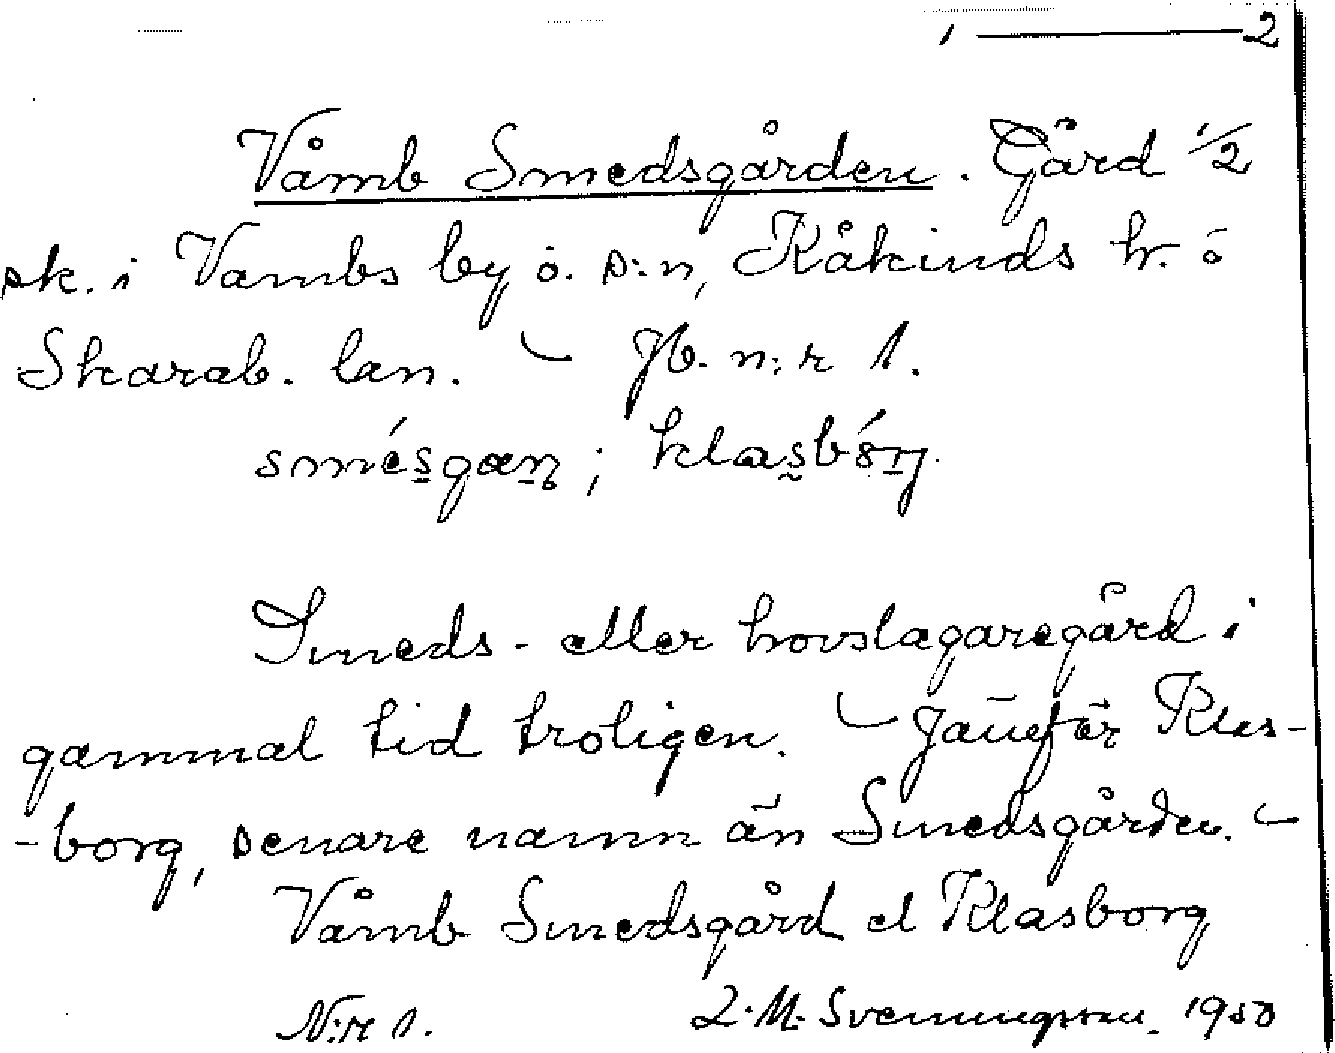 1 ——— 2
Våmb Smedsgården. Gård 1/2
sk. i Vambs by o. s:n, Kåkinds hr. o
Skarab. län. — Jb. n:r 1.
smésgan; klasbórj.
Smeds- eller hovslagaregård i
gammal tid troligen. — Jämför Klas-
-borg, senare namn än Smedsgården. —
Våmb Smedsgård el Klasborg
N:r 1. L. M. Svenungsson. 1950